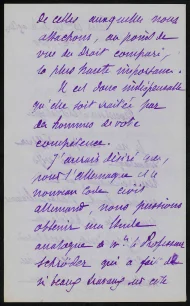 de celles auxquelles nous
attachons, au point de
vue du droit comparé,
la plus haute importance.
Il est donc indispensable
qu'elle soit traitée par
des hommes de votre
compétence.
J'aurais désiré que,
pour l'Allemagne et le
nouveau Code civil
allemand, nous puissions
obtenir une étude
analogue de Mr le Professeur
Schröder qui a fait de
si beaux travaux sur cette